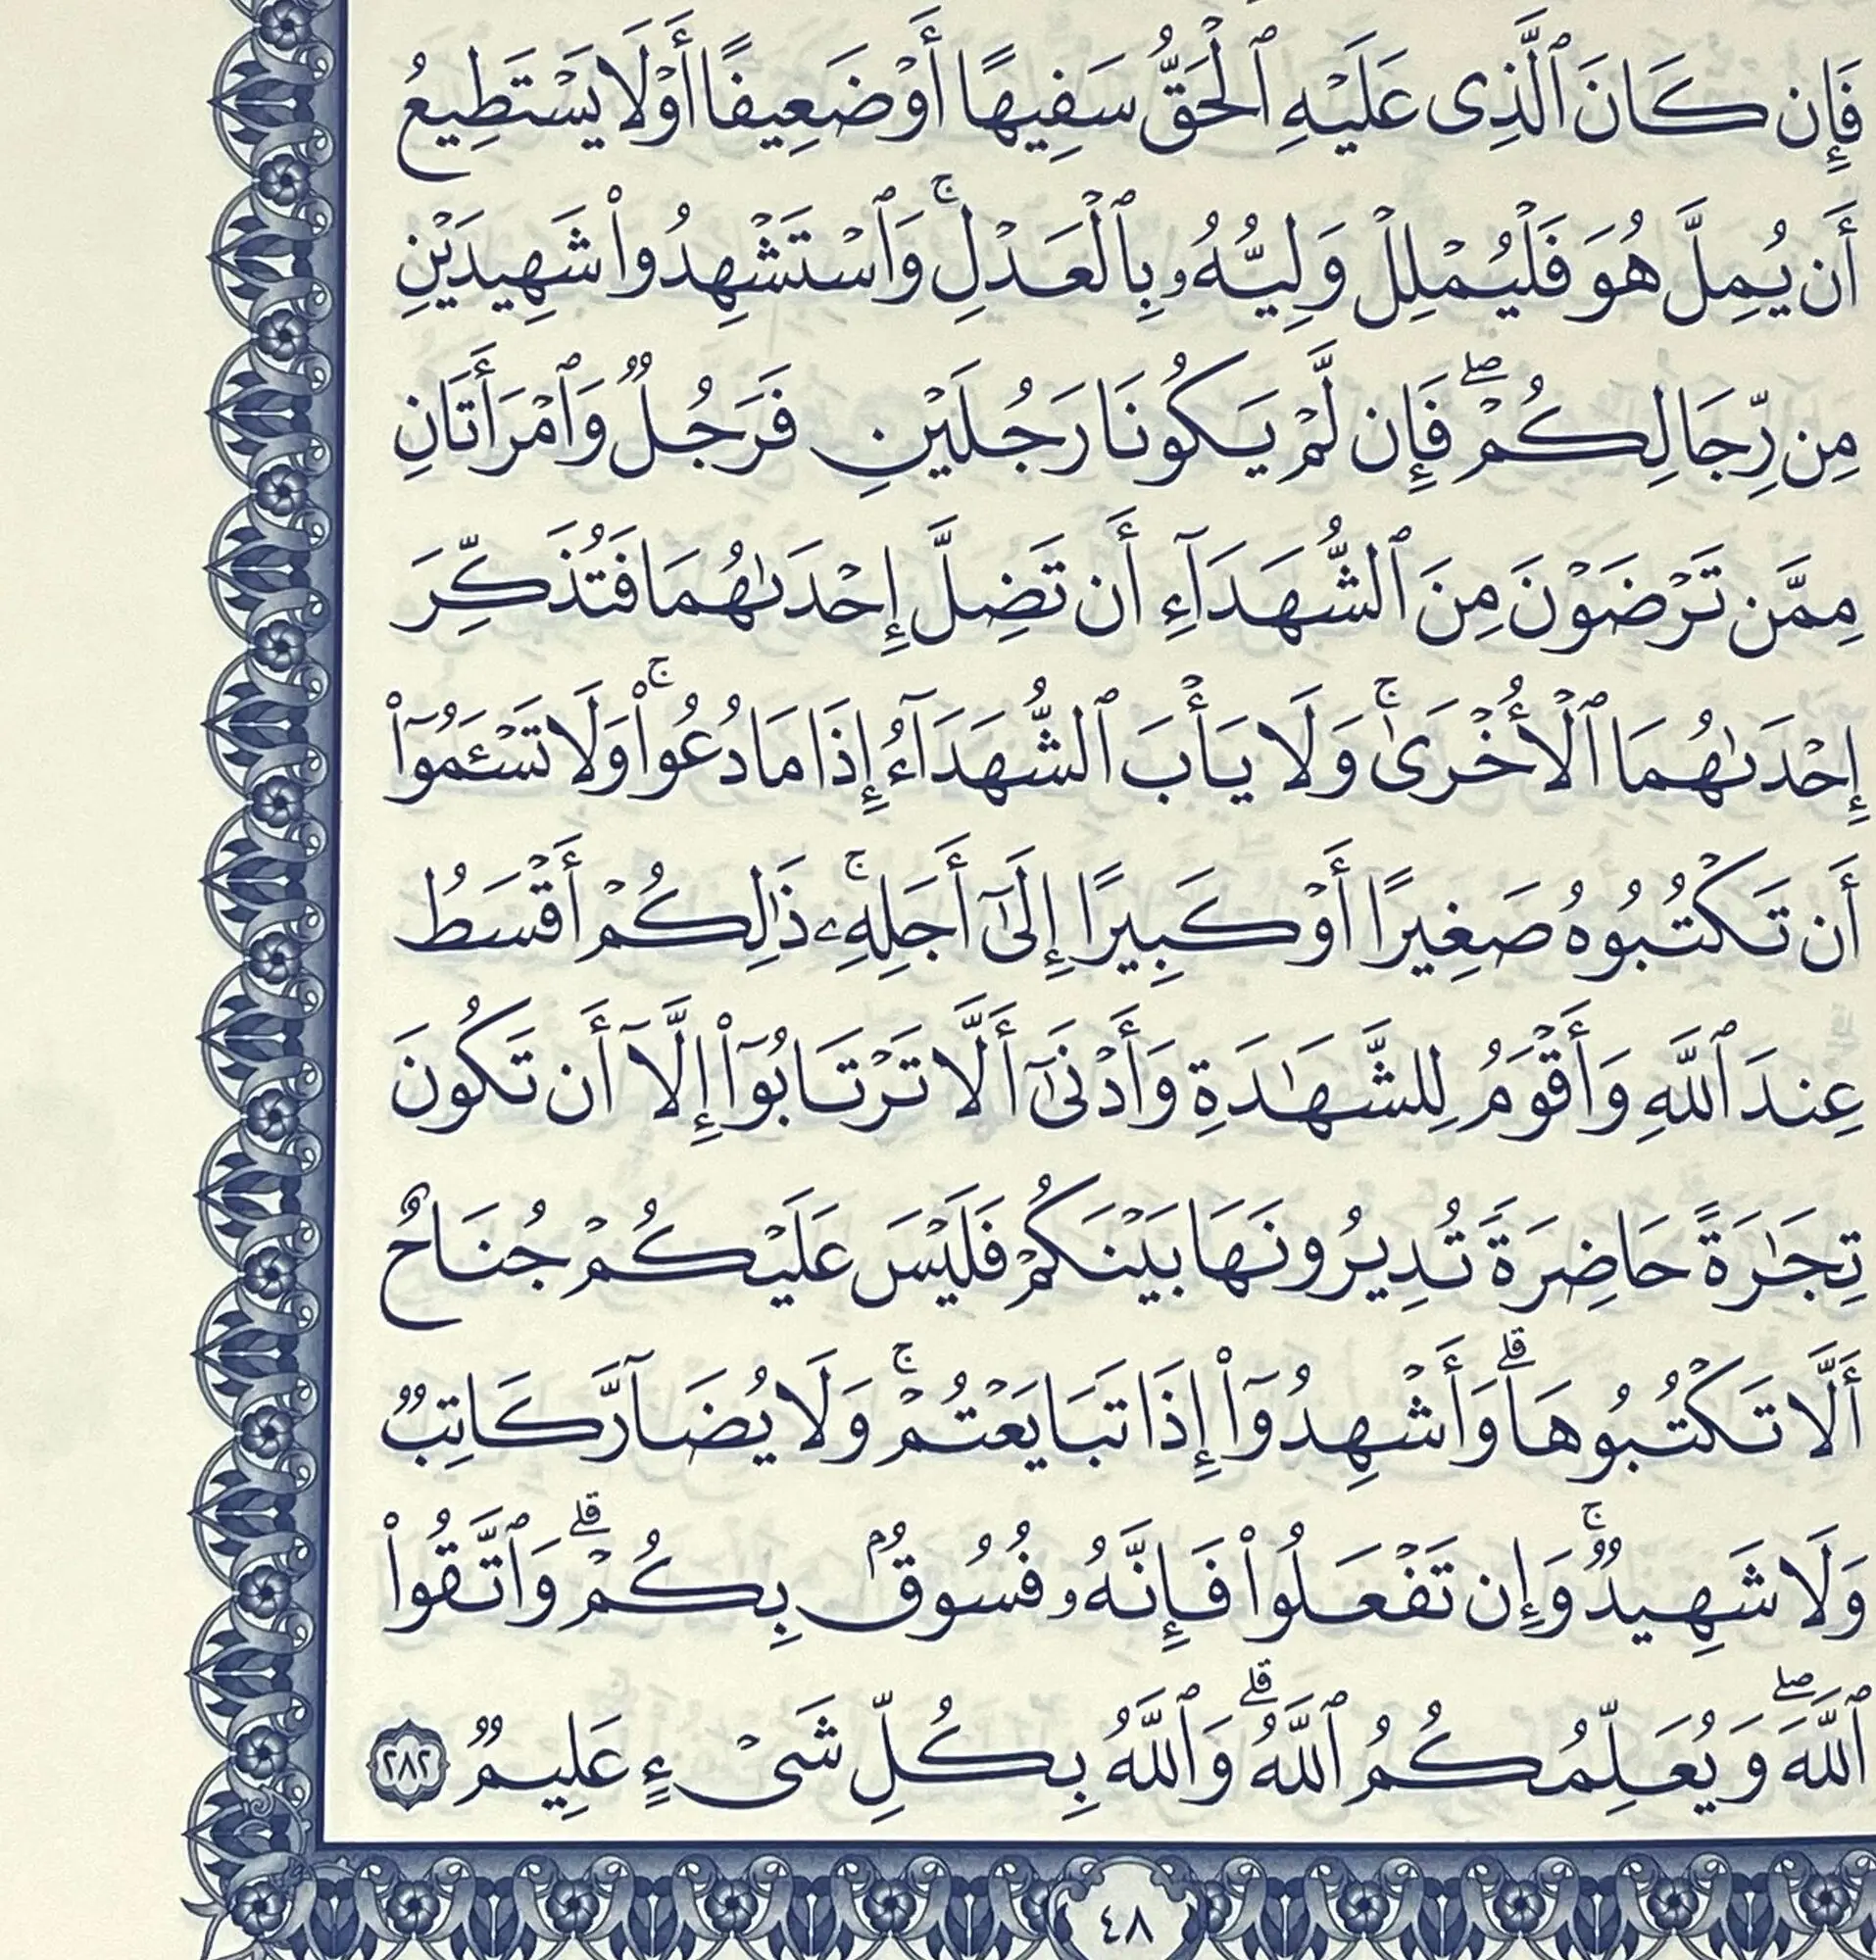 فَإِن كَانَ ٱلَّذِى عَلَيْهِ ٱلْحَقُّ سَفِيهًا أَوْ ضَعِيفًا أَوْ لَا يَسْتَطِيعُ
أَن يُمِلَّ هُوَ فَلْيُمْلِلْ وَلِيُّهُۥ بِٱلْعَدْلِ ۚ وَٱسْتَشْهِدُوا۟ شَهِيدَيْنِ
مِن رِّجَالِكُمْ ۖ فَإِن لَّمْ يَكُونَا رَجُلَيْنِ فَرَجُلٌ وَٱمْرَأَتَانِ
مِمَّن تَرْضَوْنَ مِنَ ٱلشُّهَدَآءِ أَن تَضِلَّ إِحْدَىٰهُمَا فَتُذَكِّرَ
إِحْدَىٰهُمَا ٱلْأُخْرَىٰ ۚ وَلَا يَأْبَ ٱلشُّهَدَآءُ إِذَا مَا دُعُوا۟ ۚ وَلَا تَسْـَٔمُوٓا۟
أَن تَكْتُبُوهُ صَغِيرًا أَوْ كَبِيرًا إِلَىٰٓ أَجَلِهِۦ ۚ ذَٰلِكُمْ أَقْسَطُ
عِندَ ٱللَّهِ وَأَقْوَمُ لِلشَّهَٰدَةِ وَأَدْنَىٰٓ أَلَّا تَرْتَابُوٓا۟ إِلَّآ أَن تَكُونَ
تِجَٰرَةً حَاضِرَةً تُدِيرُونَهَا بَيْنَكُمْ فَلَيْسَ عَلَيْكُمْ جُنَاحٌ
أَلَّا تَكْتُبُوهَا ۗ وَأَشْهِدُوٓا۟ إِذَا تَبَايَعْتُمْ ۚ وَلَا يُضَآرَّ كَاتِبٌ
وَلَا شَهِيدٌ ۚ وَإِن تَفْعَلُوا۟ فَإِنَّهُۥ فُسُوقٌۢ بِكُمْ ۗ وَٱتَّقُوا۟
ٱللَّهَ ۖ وَيُعَلِّمُكُمُ ٱللَّهُ ۗ وَٱللَّهُ بِكُلِّ شَىْءٍ عَلِيمٌ ٢٨٢
٤٨